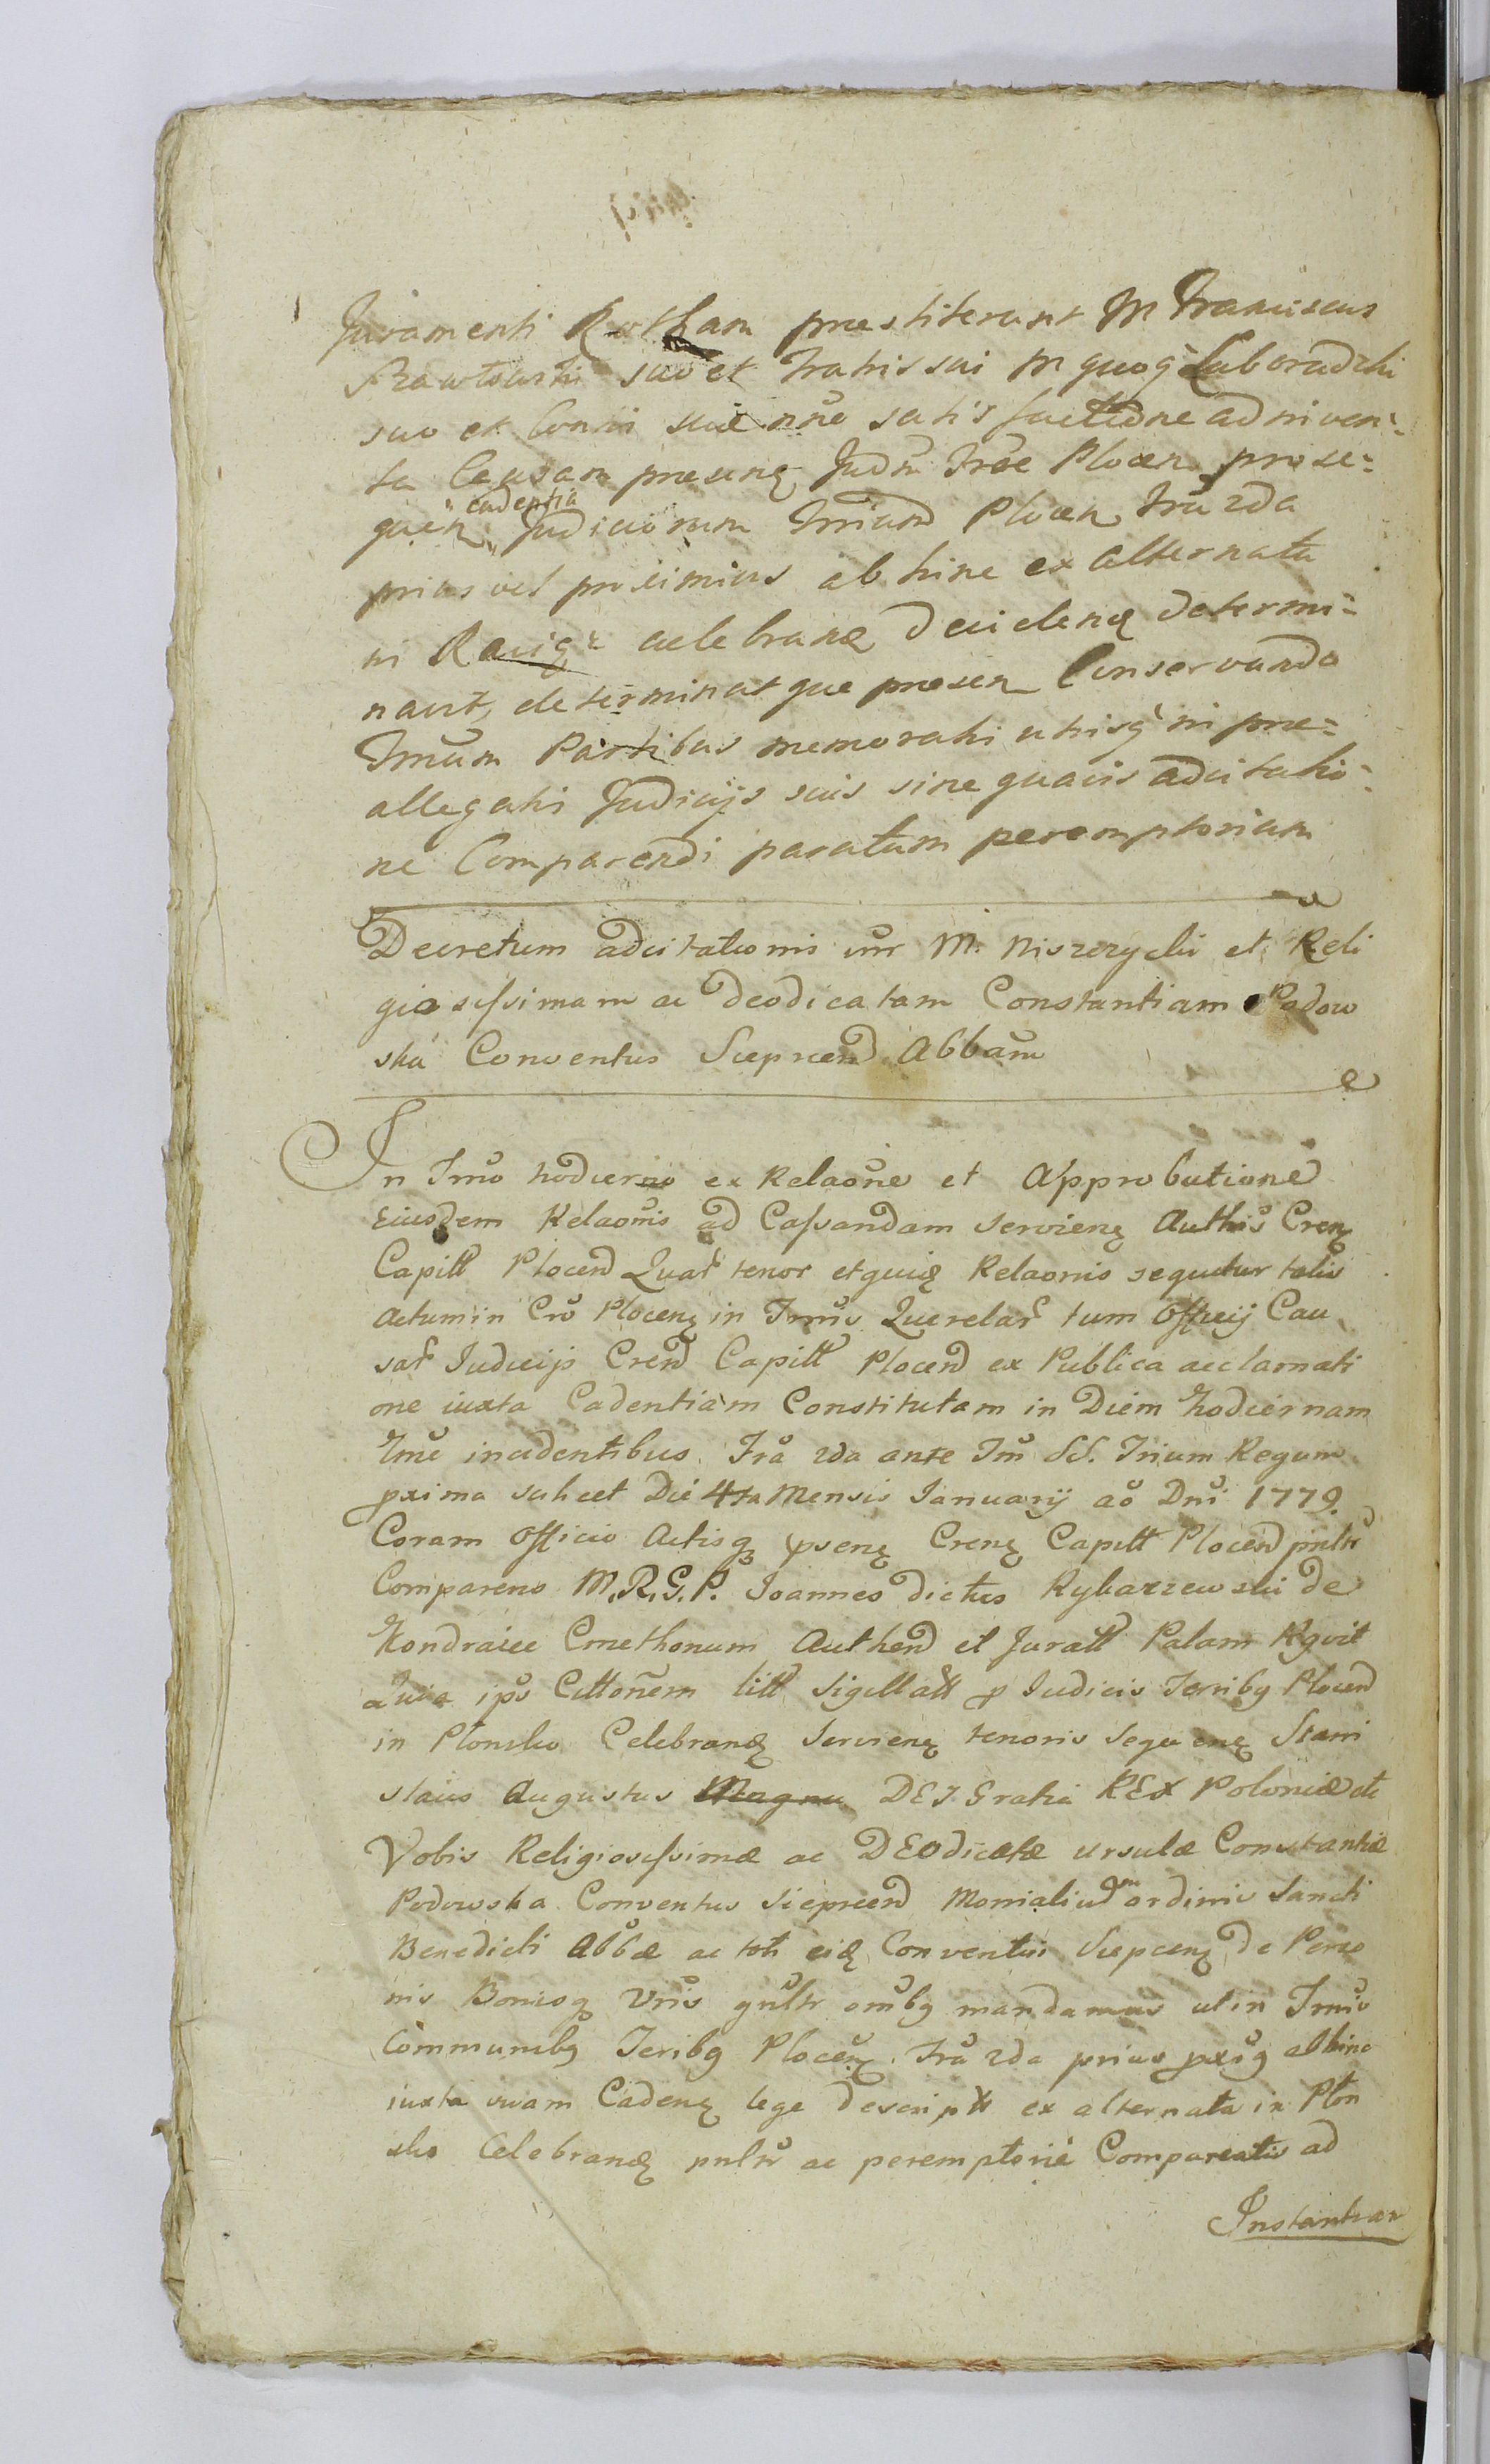 Juramenti Rotham præstiterunt M Franciscus
suo et Fratris sui M quoq Laboradzki
suo et suæ nõe satisfactiõne adniven-
ta Causam præseng Judm Træ Plocen prose-
quen cadentia Judiciorum Trriund Plocen fra 2da
prius vel proximius ab hinc ex alternata
in Raciąż celebrand decidend determi-
navit, determinatque præsen Conservando
Trmum Partibus memorati utrisq in præ-
allegatis Judicijs suis sine quavis adcitatio-
ne Comparendi paratum peremptorium
Decretum adcitationis inr M. Niszczycki et Reli
giosissimam ac Deodicatam Constantiam Podow
ską Conventus Sieprcend Abbam
In Trmo hodierno ex Relaone et Approbatione
Eiusdem Relaonis ad Cassandam servieng Authis Creng
Capitt Plocend Quar tenor etquid Relaonis sequitur talis
Actum in Cro Ploceng in Trmis Querelar tum Officij Cau
sar Judicijs Crend Capitt Plocend ex Publica acclamati
one iuxta Cadentiam Constitutam in Diem hodiernam
Tme incidentibus Fra 2da ante Fm SS. Trium Regum
pxima scilicet Die 4ta Mensis Ianuarij ao Dni 1779.
Coram Officio Actisq pseng Creng Capitt Plocend pnltr
Comparens M.R.G.P. Joannes dictus Rybarzewski de
Kondraiec Cmethonum Authend et Juratt Palam Rgvit
Quia ips Cittonem litt Sigillatt p Judicis Terriby Plocend
in Płonsko Celebrand Servieng tenoris Segueng Stani
slaus Augustus Magnu DEI Gratia REX Poloniæ etc
Vobis Religiosissimæ ac DEOdicatæ Ursulæ Constantiæ
Podowska Conventus Sieprcend Monialium ordinis Sancti
Benedicti Abbæ ac toti eid Conventui Siepceng de Perso
nis Bonisq Vris gnltr omby mandamus ut in Trmis
Communiby Teriby Ploceng fra 2da prius pxiq abhinc
iuxta suam Cadeng lege descriptt ex alternata in Płon
sko Celebrand pnltr ac peremptorie Compareatis ad
Instantiam